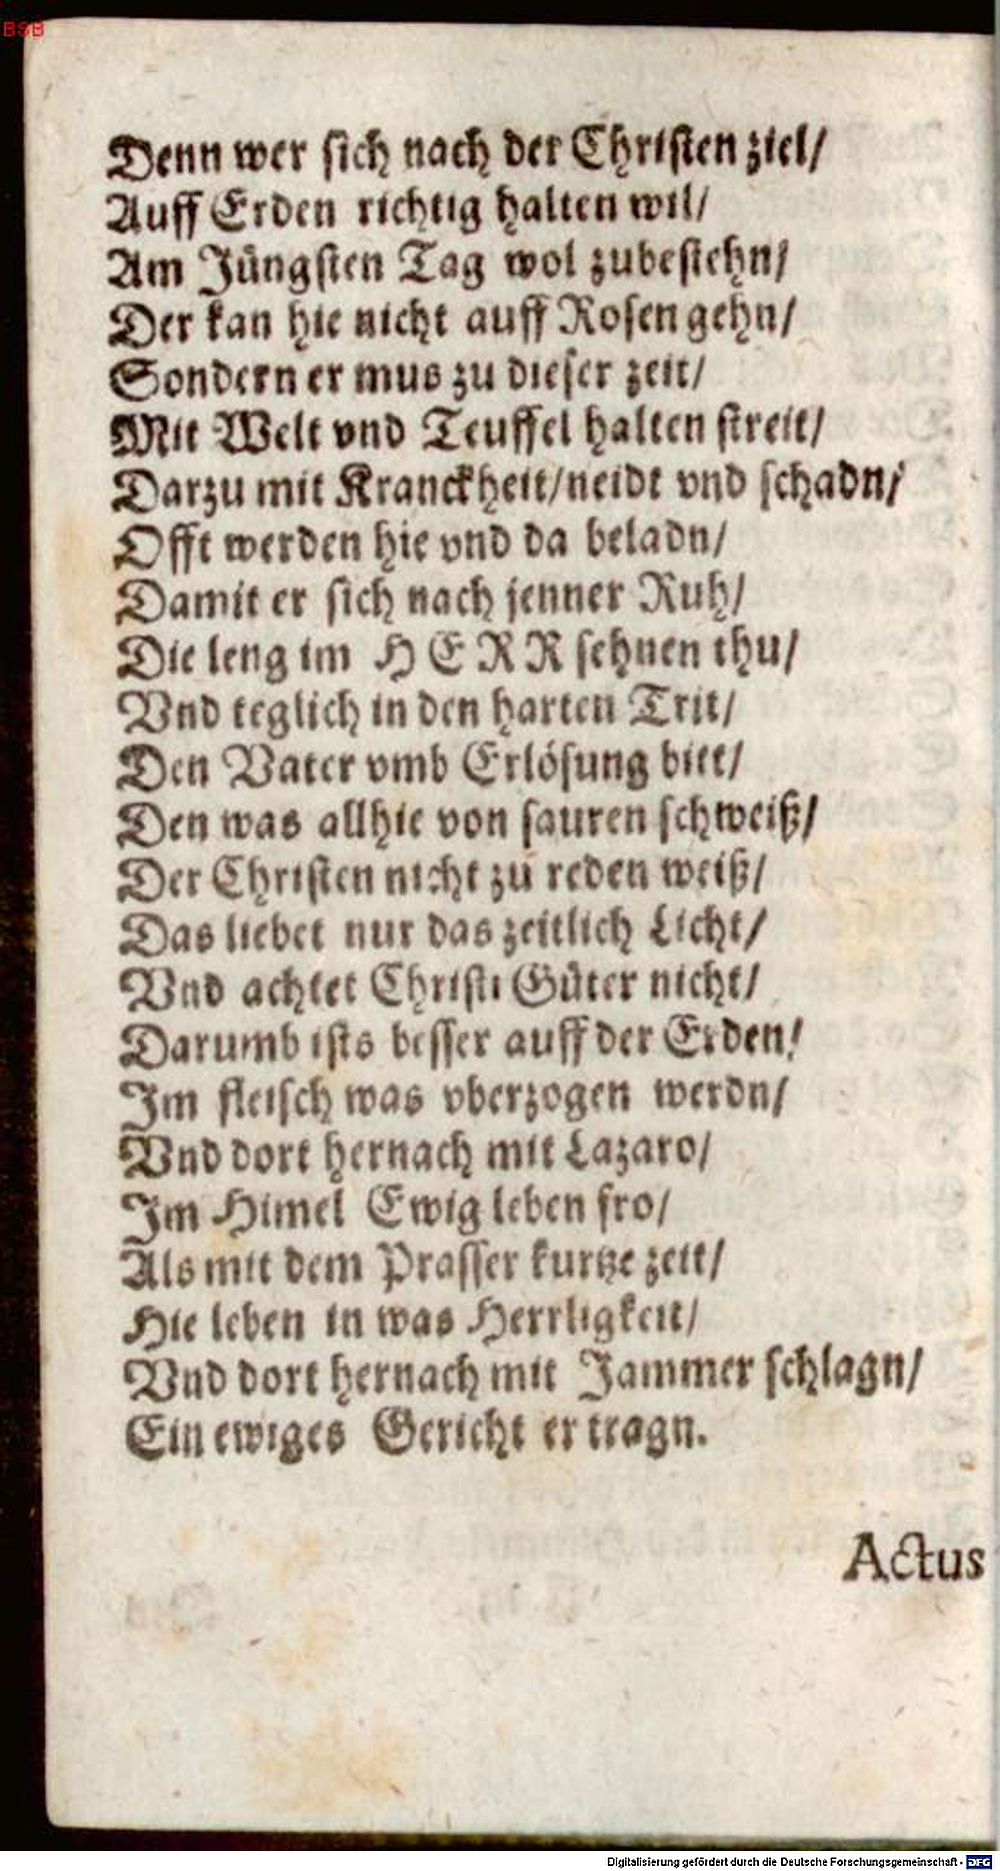 BSB
Denn wer sich nach der Christen ziel/
Auff Erden richtig halten wil/
Am Jüngsten Tag wol zubestehn/
Der kan hie nicht auff Rosen gehn/
Sondern er mus zu dieser zeit/
Mit Welt vnd Teuffel halten streit/
Darzu mit Kranckheit/neidt vnd schadn/
Offt werden hie vnd da beladn/
Damit er sich nach jenner Ruh/
Die leng im HERR sehnen thu/
Vnd teglich in den harten Trit/
Den Vater vmb Erlösung bitt/
Den was allhie von sauren schweiß/
Der Christen nicht zu reden weiß/
Das liebet nur das zeitlich Licht/
Vnd achtet Christi Güter nicht/
Darumb ists besser auff der Erden/
Im fleisch was vberzogen werdn/
Vnd dort hernach mit Lazaro/
Im Himel Ewig leben fro/
Als mit dem Prasser kurtze zeit/
Hie leben in was Herrligkeit/
Vnd dort hernach mit Jammer schlagn/
Ein ewiges Gericht ertragn.
Actus
Digitalisierung gefördert durch die Deutsche Forschungsgemeinschaft - DFG